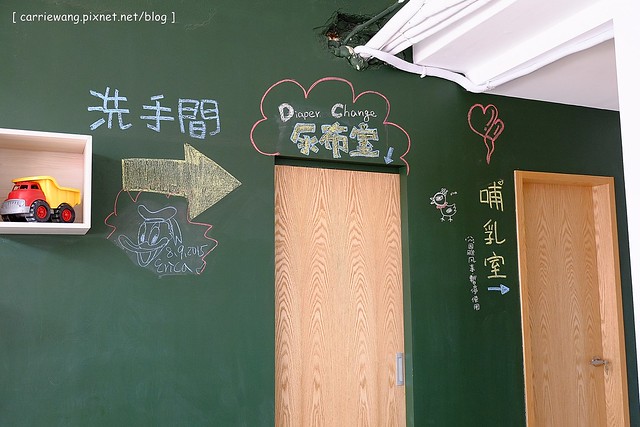 [ carriewang.pixnet.net/blog ]
洗手間
Diaper Change
尿布室
8.9.2015
Erica
哺乳室